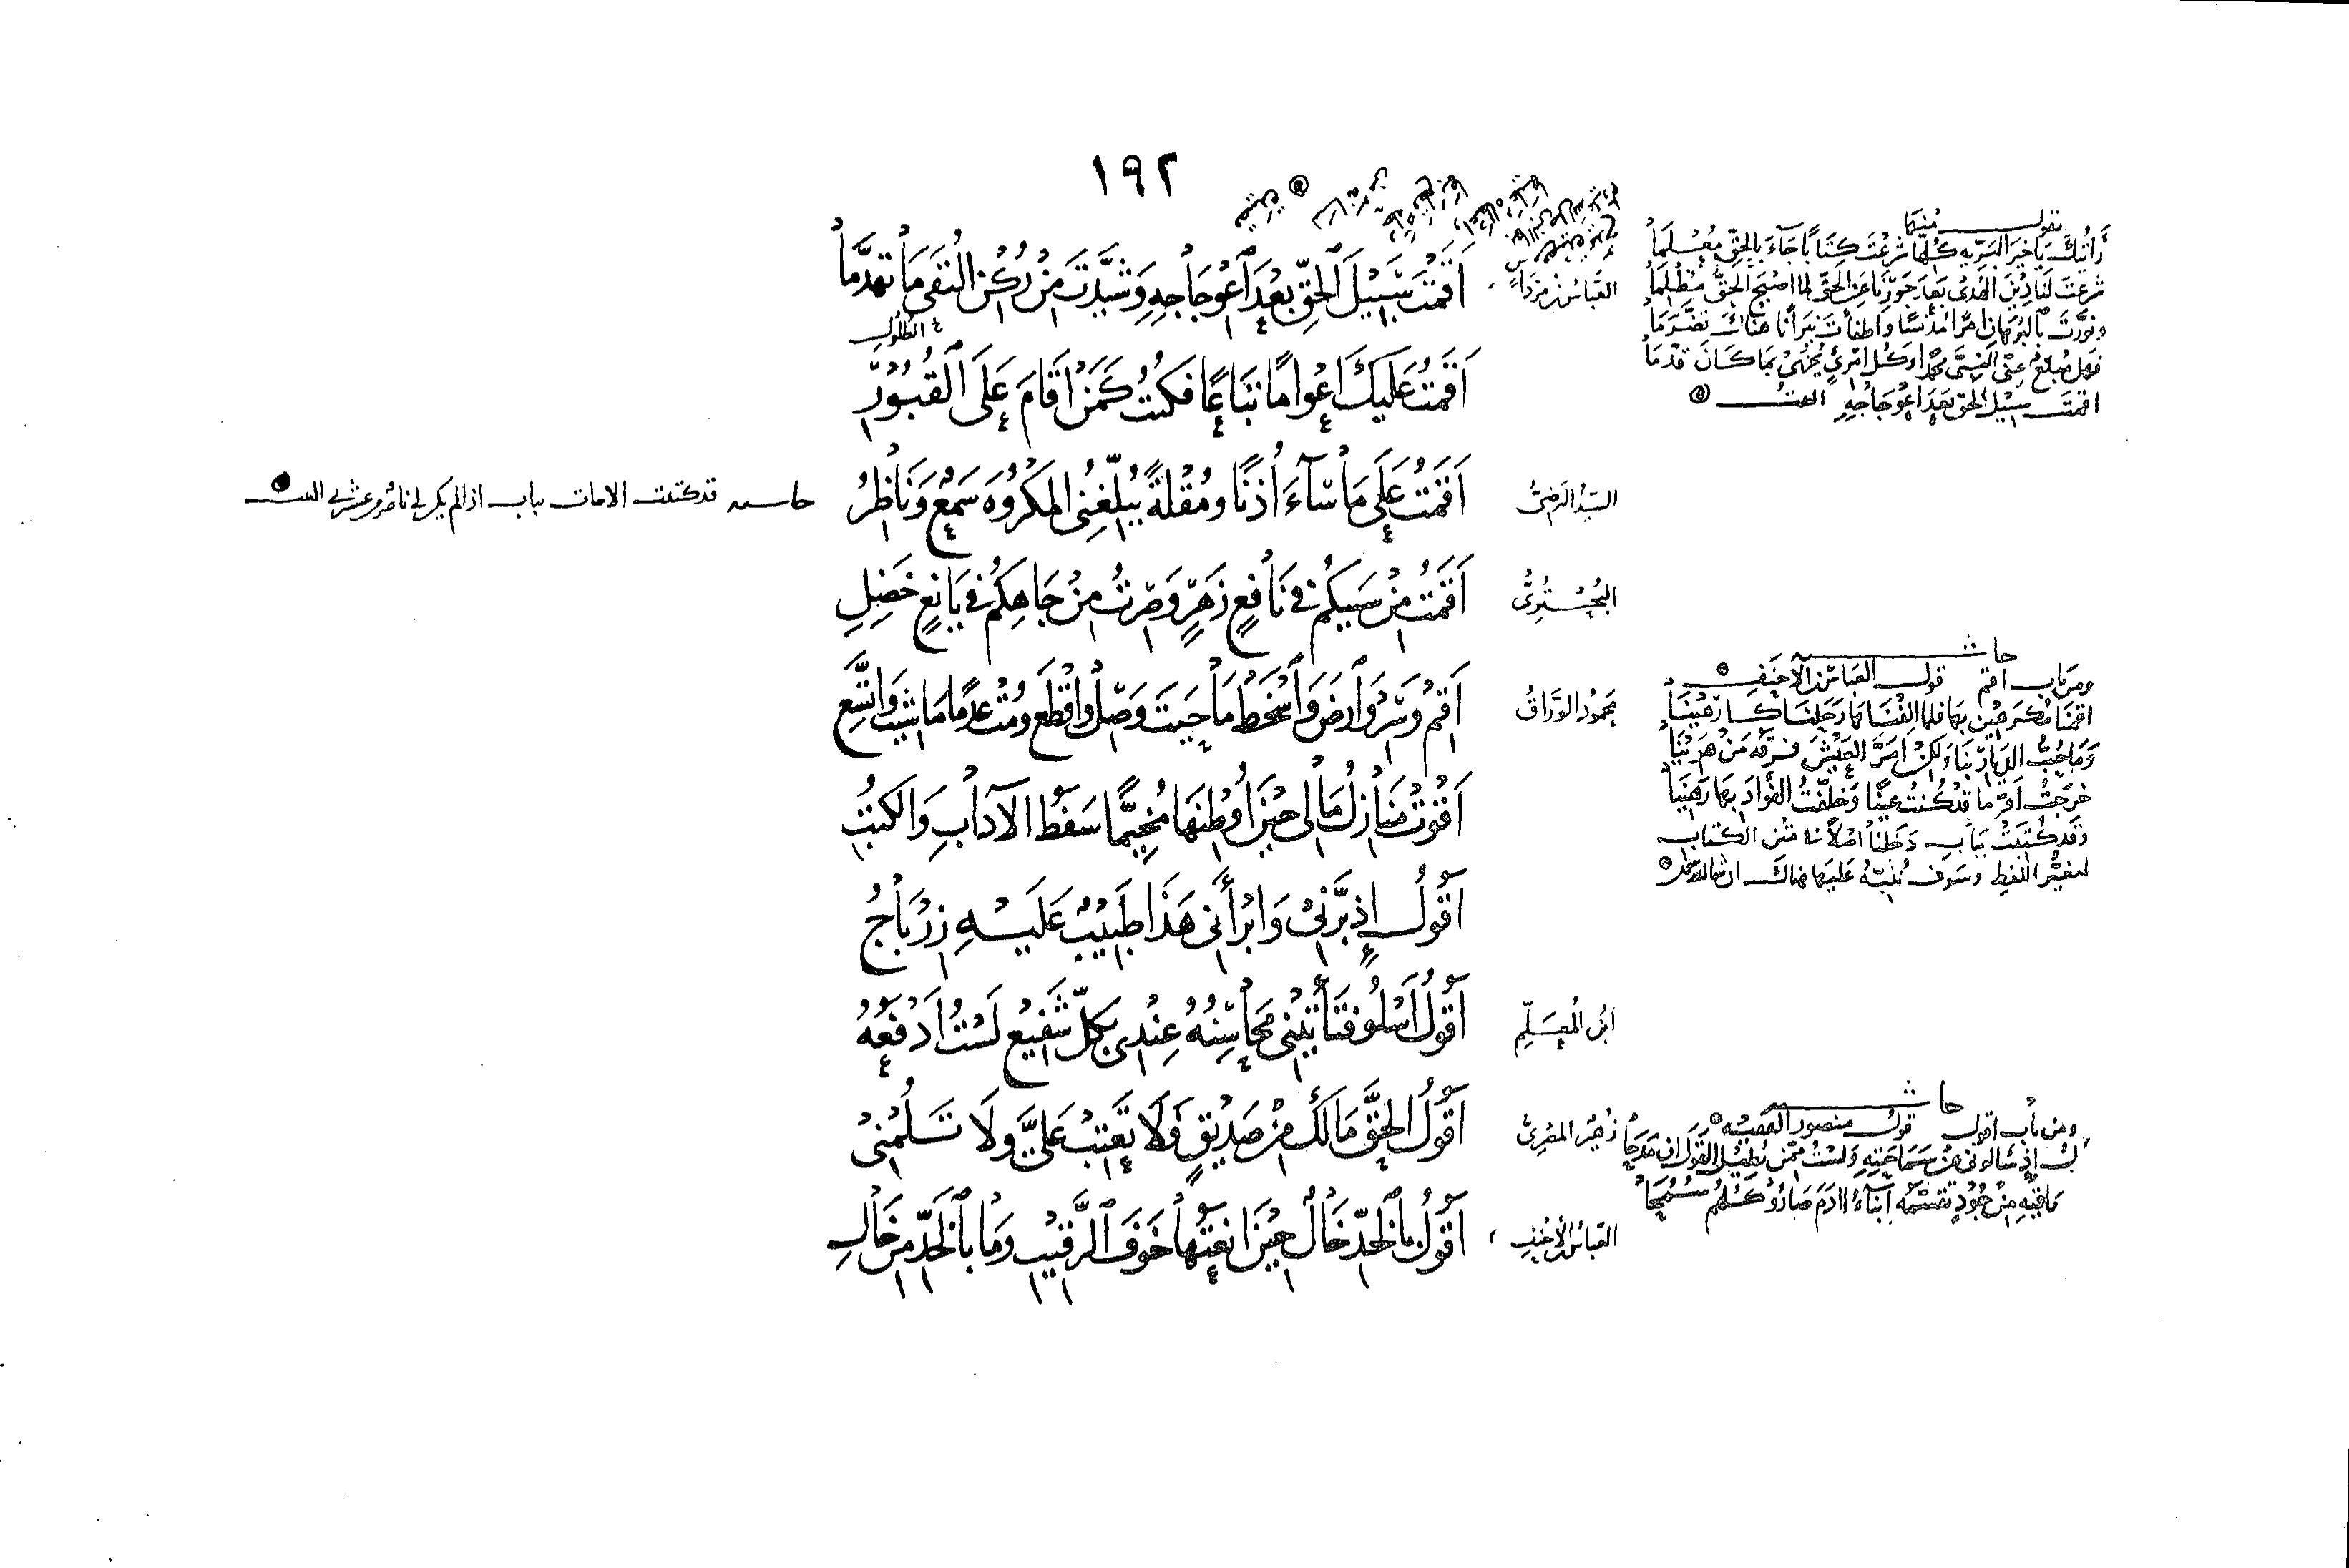 ١٩٢
العباس بن مرداس
أَقَمْتَ سَبِيْلَ الحَقِّ بَعْدَ اعْوِجَاجِهِ وَشَيَّدْتَ مِنْ رُكْنِ التُّقَى مَا تَهَدَّمَا
الطلول
أَقَمْتُ عَلَيْكَ أَعْوَامًا تِبَاعًا فَكُنْتُ كَمَنْ أَقَامَ عَلَى القُبُوْرِ
السيد الرضي
أَقَمْتُ عَلَى مَا سَآءَ أُذْنًا وَمُقْلَةً يُبَلِّغُنِي المَكْرُوْهَ سَمْعٌ وَنَاظِرُ
البحتري
أَقَمْتُ مِنْ سَيْبِكُمْ فِي نَافِعٍ زَهِرٍ وَصِرْتُ مِنْ جَاهِكُمْ فِي يَانِعٍ خَضِلِ
محمود الوراق
أَقِمْ وَسِرْ وَارْضَ وَاسْخَطْ مَا حَيِيْتَ وَصِلْ وَاقْطَعْ وَمُتْ عَدَمًا مَا شِيتَ وَاتَّسِعِ
أَقْوَتْ مَنَازِلُ مَالِي حِيْنَ أَوْطَنَهَا مُخَيِّمًا سَفَطُ الآدَابِ وَالكُتُبِ
أَقُولُ إِذْ بَرَّنِي وَأَبْرَأَنِي هَذَا طَبِيْبٌ عَلَيْهِ زِرْبَاجُ
ابن المعلم
أَقُولُ أَسْلُو فَتَأْتِيْنِي مَحَاسِنُهُ عِنْدِي بِكُلِّ شَفِيْعٍ لَسْتُ أَدْفَعُهُ
زهير المصري
أَقُولُ الحَقَّ مَا لَكَ مِنْ صَدِيْقٍ فَلَا تَعْتِبْ عَلَيَّ وَلَا تَلُمْنِي
العباس بن الأحنف
أَقُولُ بِالخَدِّ خَالٌ حِيْنَ أَنْعَتُهَا خَوْفَ الرَّقِيْبِ وَمَا بِالخَدِّ مِنْ خَالِ
يقول منها
رأيتك يا خير البرية كلها شرعت كتابا جاء بالحق معلما
شرعت لنا دين الهدى بعد جورنا عن الحق لما أصبح الحق مظلما
ونورت بالبرهان أمرا مدلسا وأطفأت نيرانا هناك تضرما
فهل مبلغ عني النبي محمدا وكل امرئ يجزى بما كان قدما
أقمت سبيل الحق بعد اعوجاجه البيت
قد كتبت الأبيات بباب إذا لم يكن لي ناصر وعشرتي البيت
ومن باب أقم قول العباس بن الأحنف
أقمنا مكرهين بها فلما ألفناها رحلنا كارهينا
وما حب الديار بنا ولكن أمر العيش فرقة من هوينا
خرجت أقر ما قد كنت عينا وخلفت الفؤاد بها رهينا
وقد كتبت بباب دخلنا أصلا في متن الكتاب
لتغير اللفظ وسوف ننبه عليها هناك ان شاء الله تعالى
حاشية
ومن باب أقول قول منصور الفقيه
إذ سألوني عن سماحته ولست ممن يطيل القول إن مدحا
ما فيه من جود تقسمه أبناء آدم صاروا كلهم سمحا